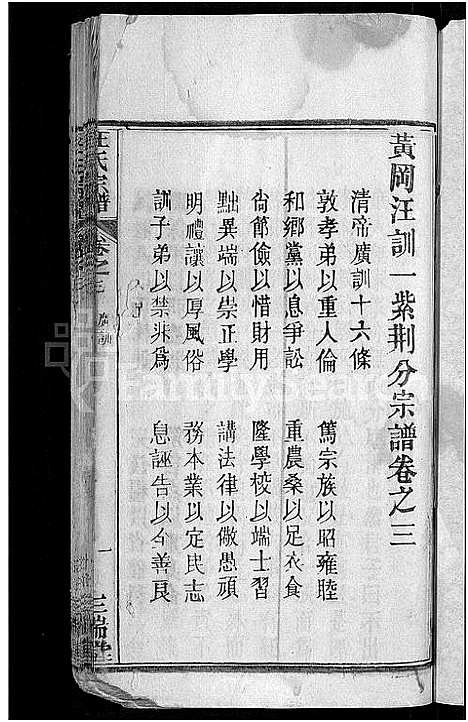 黃岡汪訓一紫荆分宗譜卷之三
清帝廣訓十六條
敦孝弟以重人倫　篤宗族以昭雍睦
和鄉黨以息爭訟　重農桑以足衣食
尙節儉以惜財用　隆學校以端士習
黜異端以崇正學　講法律以儆愚頑
明禮讓以厚風俗　務本業以定民志
訓子弟以禁非爲　息誣告以全善良
汪氏宗譜　卷之三　廣訓　一　三瑞堂
FamilySearch